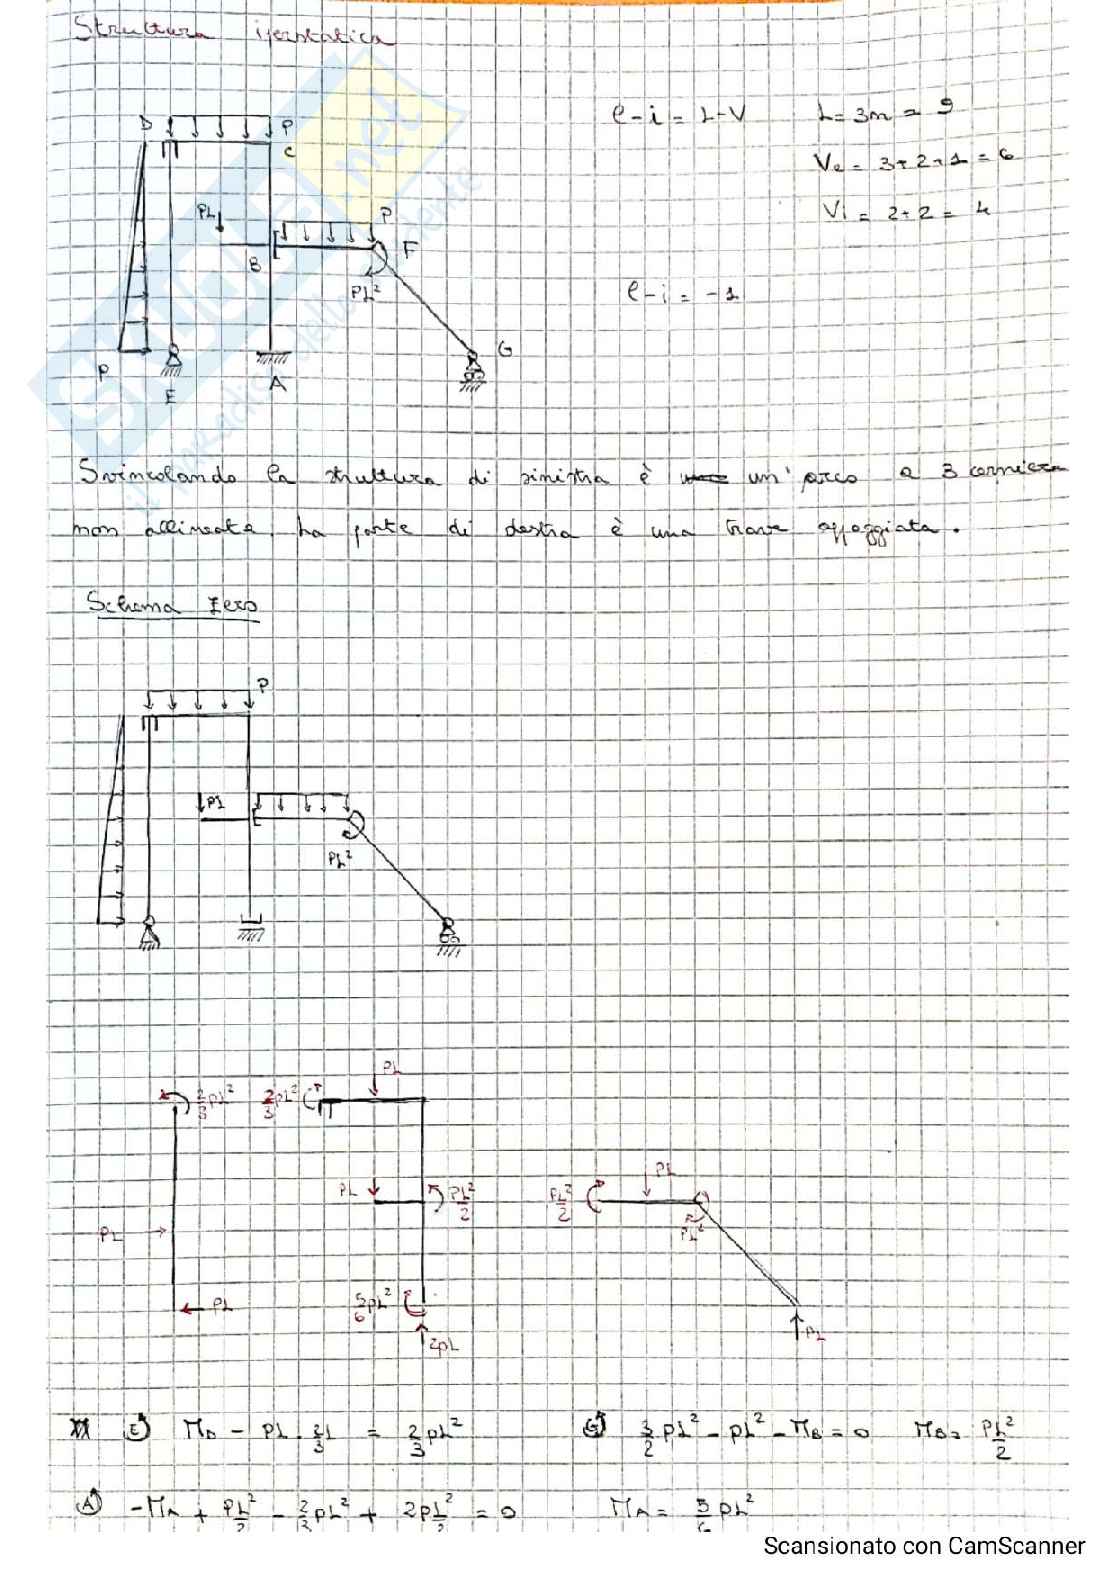 Struttura iperstatica
l-i = L-V L= 3m = 9
Ve = 3+2+1 = 6
Vi = 2+2 = 4
l-i = -1
D P
C
PL P
B F
PL²
P E A G
Svincolando la struttura di sinistra è un' arco a 3 cerniere
non allineate, la parte di destra è una trave appoggiata.
Schema zero
P
PL
PL²
PL
2/3 pL² 2/3 pL²
PL PL²/2 PL²/2 PL
PL PL²
PL 5/6 pL² PL
2pL
E) MD - PL · 2L/3 = 2/3 pL² G) 3/2 pL² - pL² - MB = 0 MB= PL²/2
A) -MA + PL²/2 - 2/3 pL² + 2pL²/2 = 0 MA = 5/6 pL²
Scansionato con CamScanner